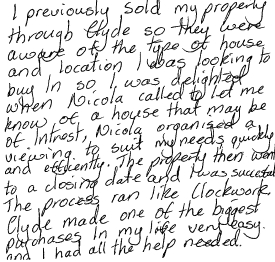 I previously sold my property
through Clyde so they were
aware of the type of house
and location I was looking to
buy In so I was delighted
when Nicola called to let me
know of a house that may be
of Intrest, Nicola organised a
viewing to suit my needs quickly
and efficently. The property then went
to a closing date and I was successful
The process ran like clockwork,
Clyde made one of the biggest
purchases in my life very easy.
and I had all the help needed.